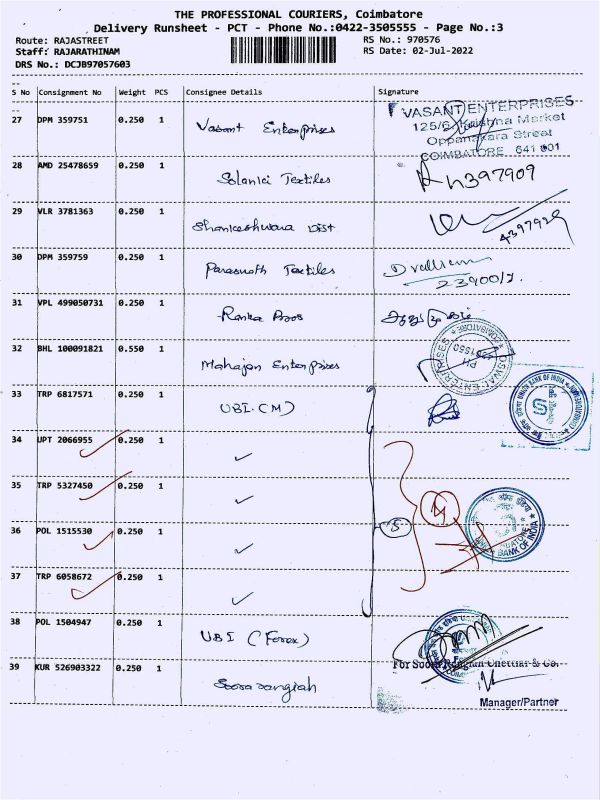 THE PROFESSIONAL COURIERS, Coimbatore
Delivery Runsheet - PCT - Phone No.:0422-3505555 - Page No.:3
Route: RAJASTREET RS No.: 970576
Staff: RAJARATHINAM RS Date: 02-Jul-2022
DRS No.: DCJB97057603
S No Consignment No Weight PCS Consignee Details Signature
27 DPM 359751 0.250 1 Vasant Enterprises
VASANT ENTERPRISES
125/6, Krishna Market
Oppanakara Street
COIMBATORE 641 001
28 AMD 25478659 0.250 1 Solanki Textiles
29 VLR 3781363 0.250 1 Shankeshwara Dist
30 DPM 359759 0.250 1 Parasnath Textiles
31 VPL 499050731 0.250 1 Ranka Bros
32 BHL 100091821 0.550 1 Mahajan Enterprises
OSWAL ENTERPRISES
COIMBATORE
33 TRP 6817571 0.250 1 UBI (M)
UNION BANK OF INDIA
34 UPT 2066955 0.250 1 ✓
35 TRP 5327450 0.250 1 ✓
36 POL 1515530 0.250 1 ✓
5
4
BANK OF INDIA
37 TRP 6058672 0.250 1 ✓
38 POL 1504947 0.250 1 UBI (Forex)
39 KUR 526903322 0.250 1 Soorarangiah
For Soora Rangiah Chettiar & Co.
Manager/Partner